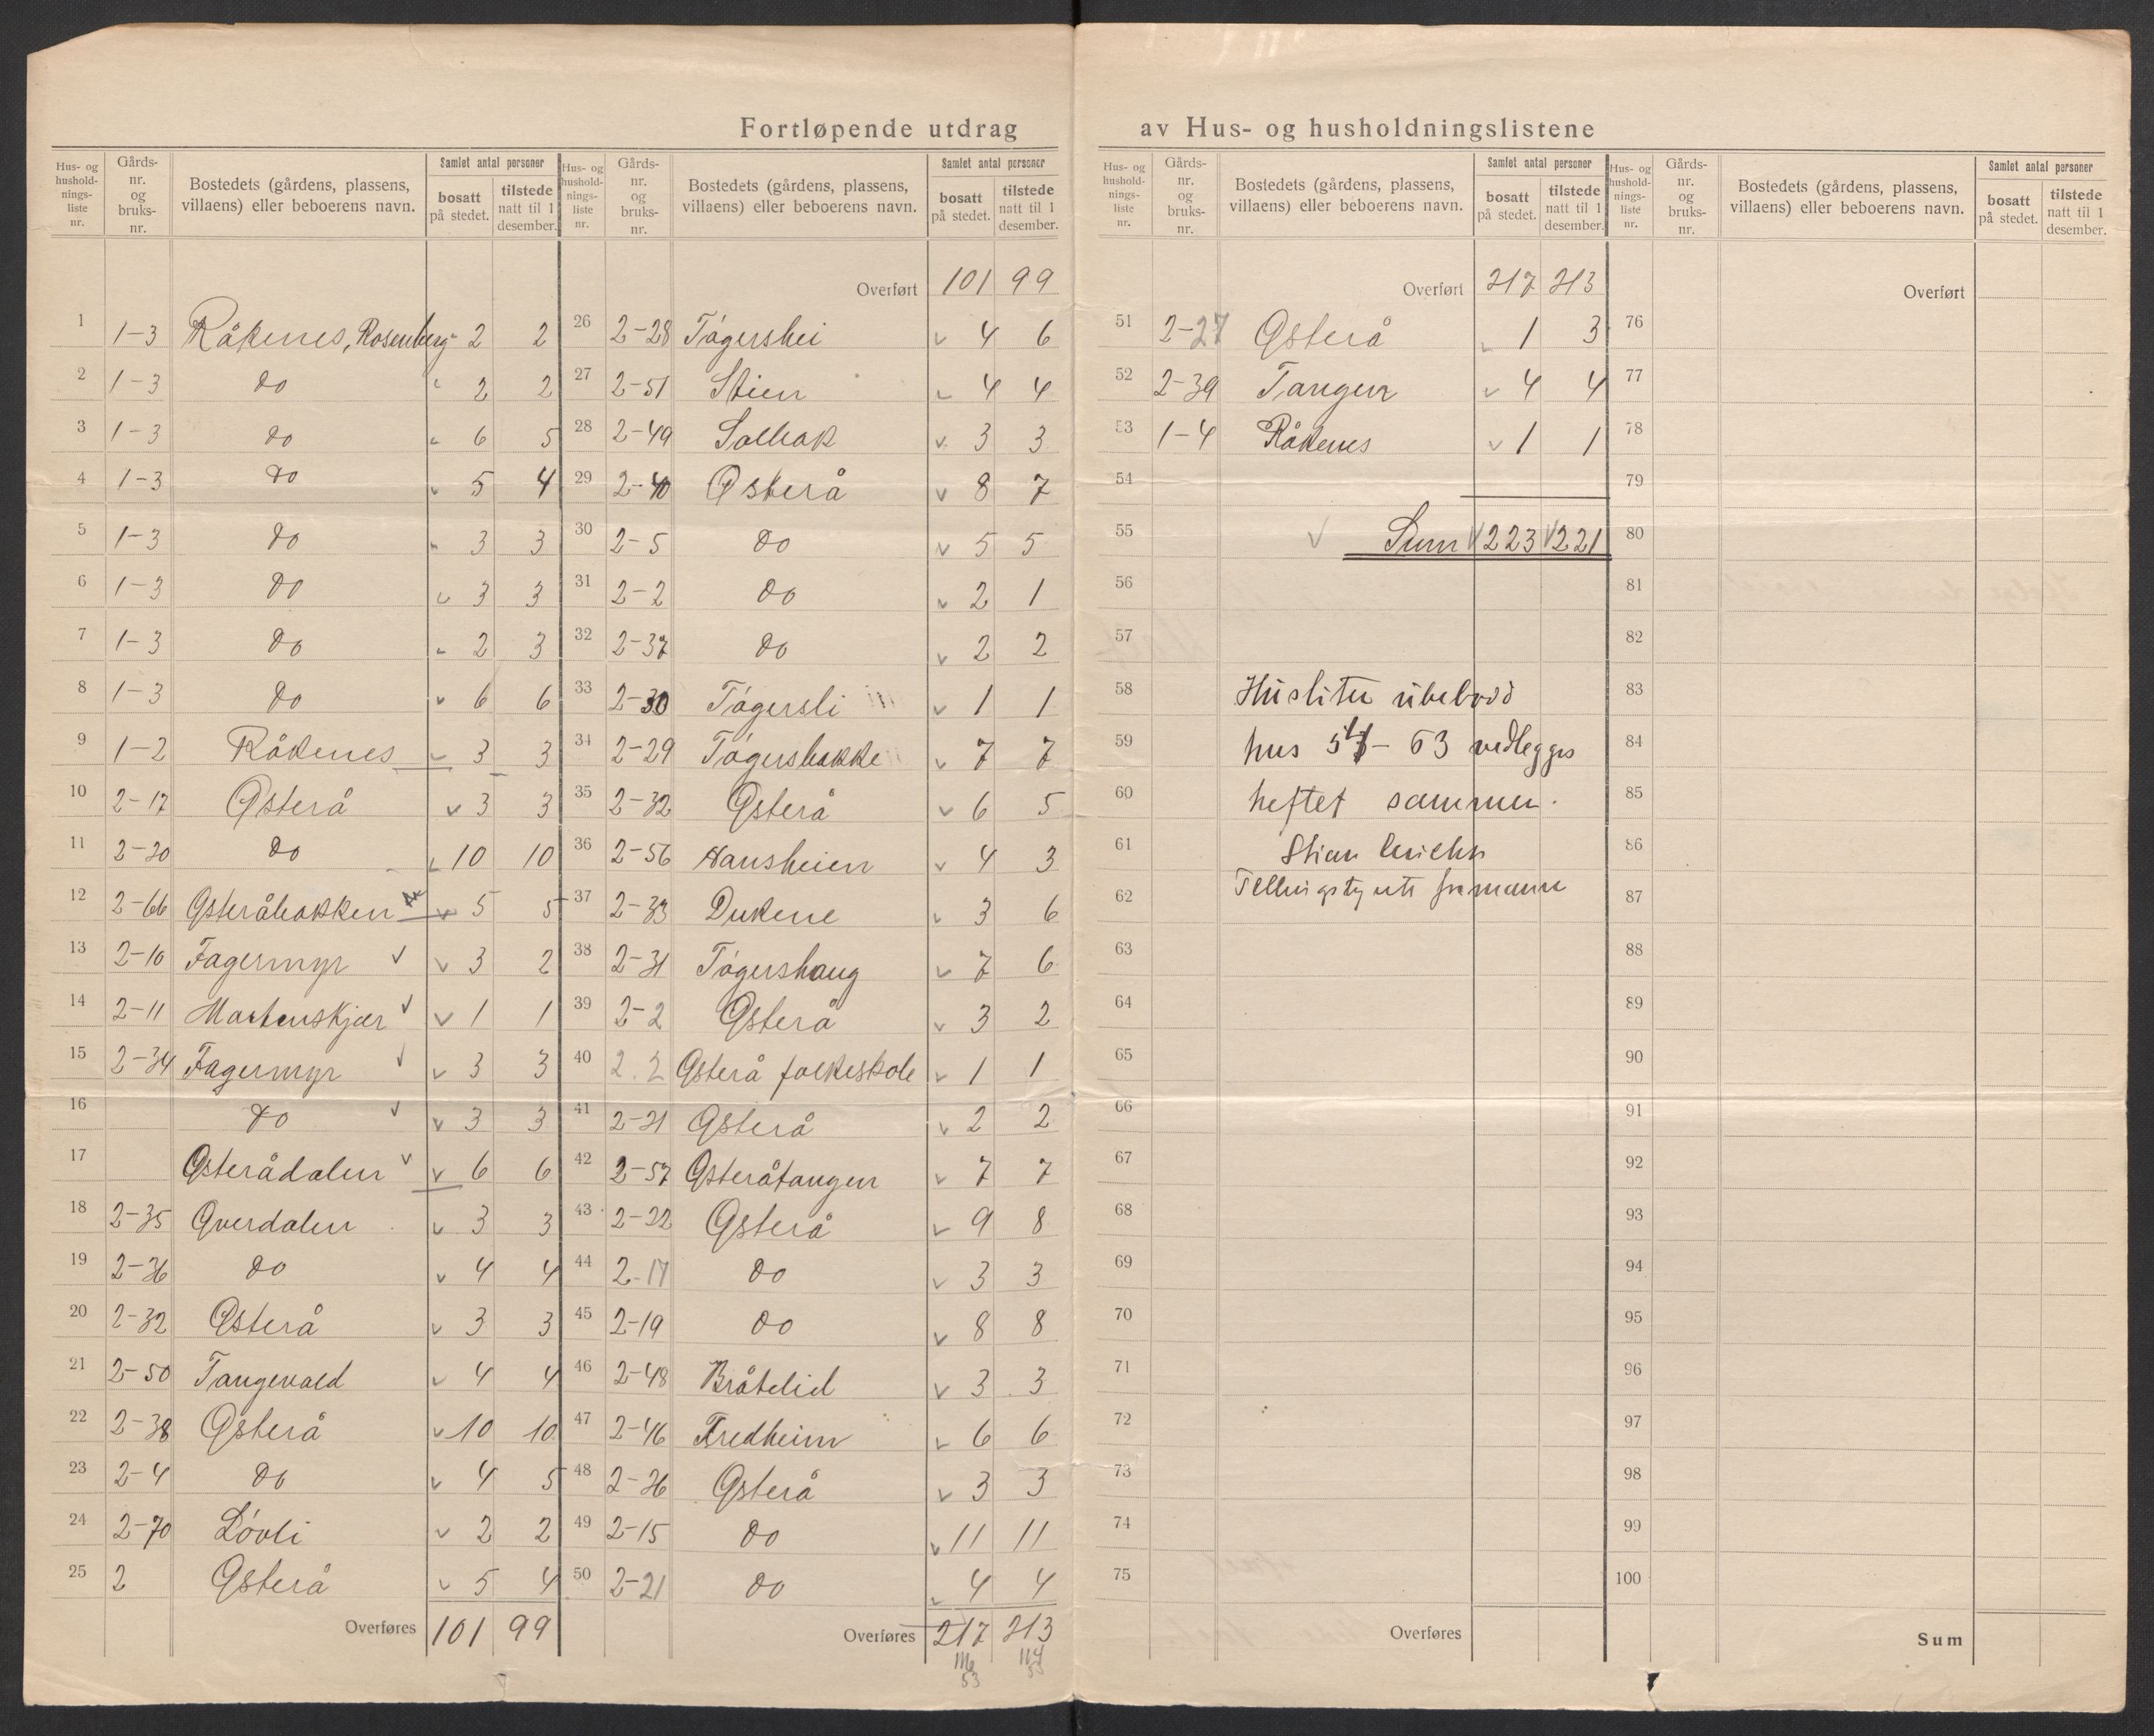 Fortløpende utdrag av Hus- og husholdningslistene
Hus- og husholdnings-liste nr. | Gårds-nr. og bruks-nr. | Bostedets (gårdens, plassens, villaens) eller beboerens navn. | Samlet antal personer | bosatt på stedet. | tilstede natt til 1 desember.
1 1-3 Råkenes, Rosenberg 2 2
2 1-3 do 2 2
3 1-3 do 6 5
4 1-3 do 5 4
5 1-3 do 3 3
6 1-3 do 3 3
7 1-3 do 2 3
8 1-3 do 6 6
9 1-2 Råkenes 3 3
10 2-17 Østerå 3 3
11 2-20 do 10 10
12 2-66 Østeråbakken 5 5
13 2-10 Fagermyr 3 2
14 2-11 Mortenskjær 1 1
15 2-34 Fagermyr 3 3
16 do 3 3
17 Østerådalen 6 6
18 2-35 Øverdalen 3 3
19 2-36 do 4 4
20 2-32 Østerå 3 3
21 2-50 Tangevald 4 4
22 2-38 Østerå 10 10
23 2-4 do 4 5
24 2-70 Løvli 2 2
25 2 Østerå 5 4
Overføres 101 99
Hus- og husholdnings-liste nr. | Gårds-nr. og bruks-nr. | Bostedets (gårdens, plassens, villaens) eller beboerens navn. | Samlet antal personer | bosatt på stedet. | tilstede natt til 1 desember.
Overført 101 99
26 2-28 Tågershei 4 6
27 2-51 Stien 4 4
28 2-49 Solbak 3 3
29 2-40 Østerå 8 7
30 2-5 do 5 5
31 2-2 do 2 1
32 2-37 do 2 2
33 2-30 Tågersli 1 1
34 2-29 Tågersbakke 7 7
35 2-32 Østerå 6 5
36 2-56 Hansheien 4 3
37 2-33 Dukene 3 6
38 2-31 Tågershaug 7 6
39 2-2 Østerå 3 2
40 2.2 Østerå folkeskole 1 1
41 2-21 Østerå 2 2
42 2-57 Østeråtangen 7 7
43 2-22 Østerå 9 8
44 2-17 do 3 3
45 2-19 do 8 8
46 2-48 Bråtelid 3 3
47 2-46 Fredheim 6 6
48 2-26 Østerå 3 3
49 2-15 do 11 11
50 2-21 do 4 4
Overføres 217 213
116 114
53 53
Hus- og husholdnings-liste nr. | Gårds-nr. og bruks-nr. | Bostedets (gårdens, plassens, villaens) eller beboerens navn. | Samlet antal personer | bosatt på stedet. | tilstede natt til 1 desember.
Overført 217 213
51 2-27 Østerå 1 3
52 2-39 Tangen 4 4
53 1-4 Råkenes 1 1
54
55 Sum 223 221
56
57
58 Huslister ubebodd
59 hus 54 - 63 vedlegges
60 heftet sammen.
61 Stian
62
63
64
65
66
67
68
69
70
71
72
73
74
75
Overføres
Hus- og husholdnings-liste nr. | Gårds-nr. og bruks-nr. | Bostedets (gårdens, plassens, villaens) eller beboerens navn. | Samlet antal personer | bosatt på stedet. | tilstede natt til 1 desember.
Overført
76
77
78
79
80
81
82
83
84
85
86
87
88
89
90
91
92
93
94
95
96
97
98
99
100
Sum